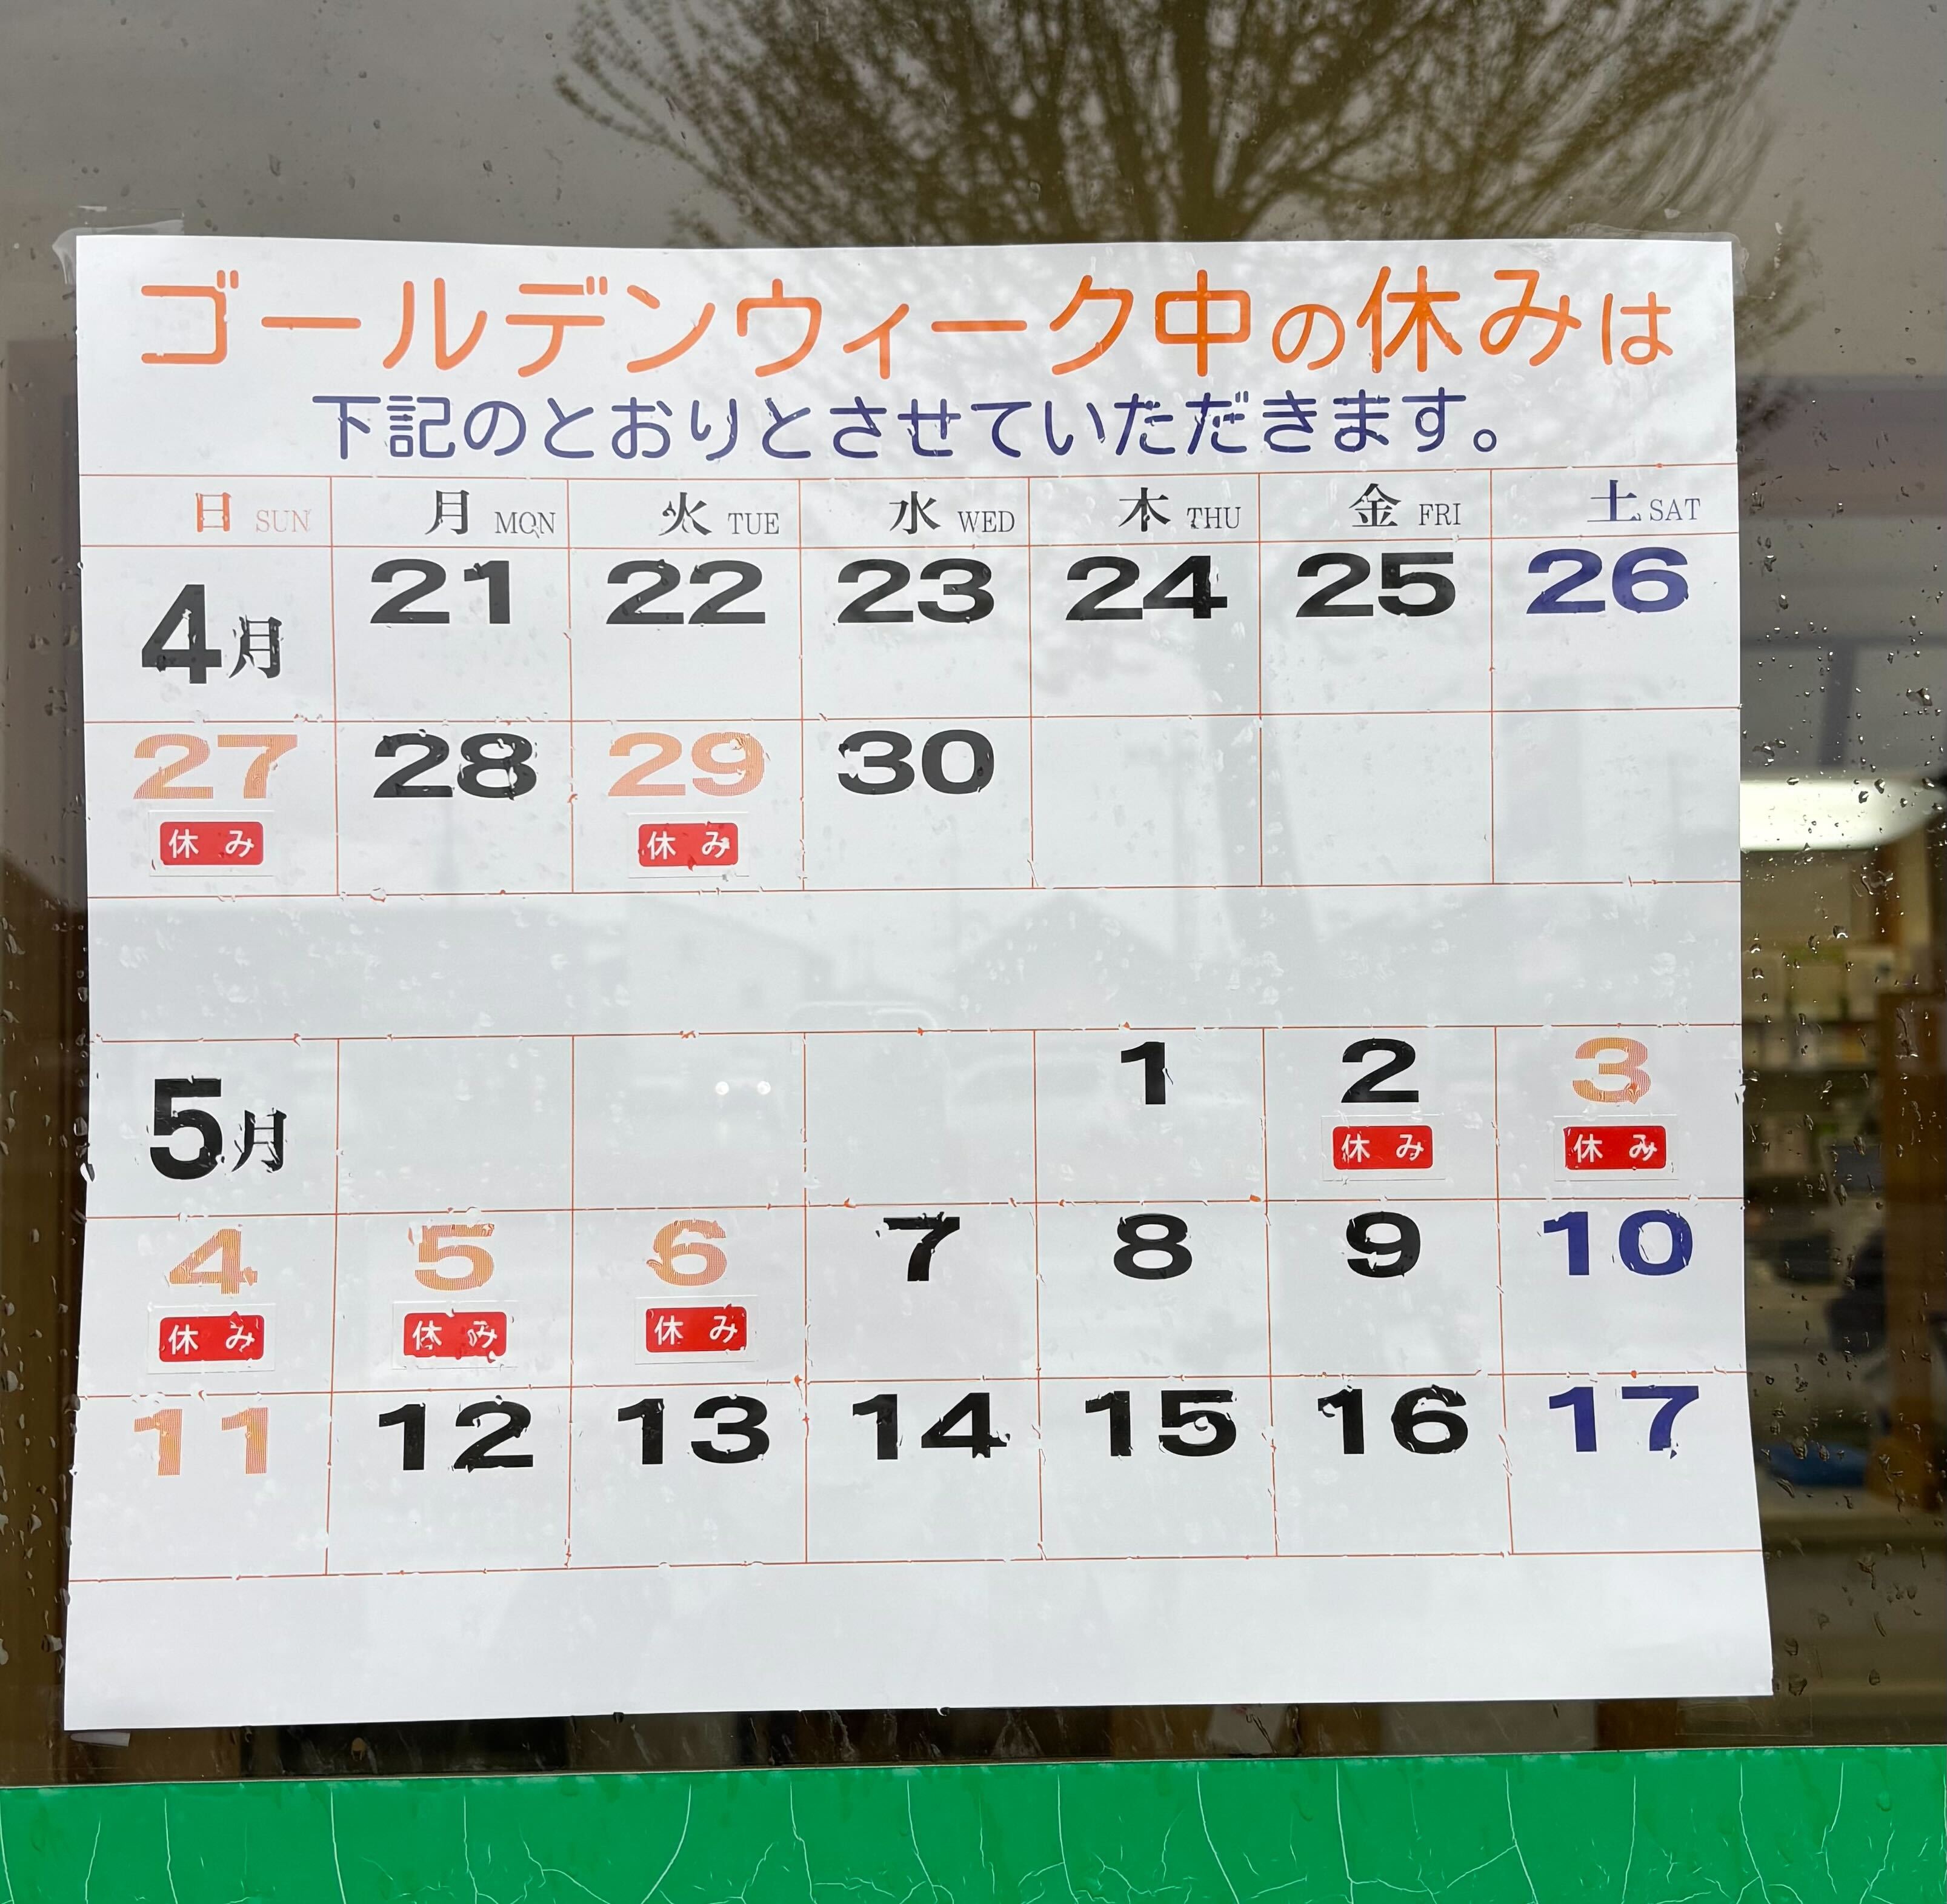 ゴールデンウィーク中の休みは
下記のとおりとさせていただきます。
日 SUN 月 MON 火 TUE 水 WED 木 THU 金 FRI 土 SAT
4月 21 22 23 24 25 26
27 28 29 30
休み 休み
5月 1 2 3
休み 休み
4 5 6 7 8 9 10
休み 休み 休み
11 12 13 14 15 16 17